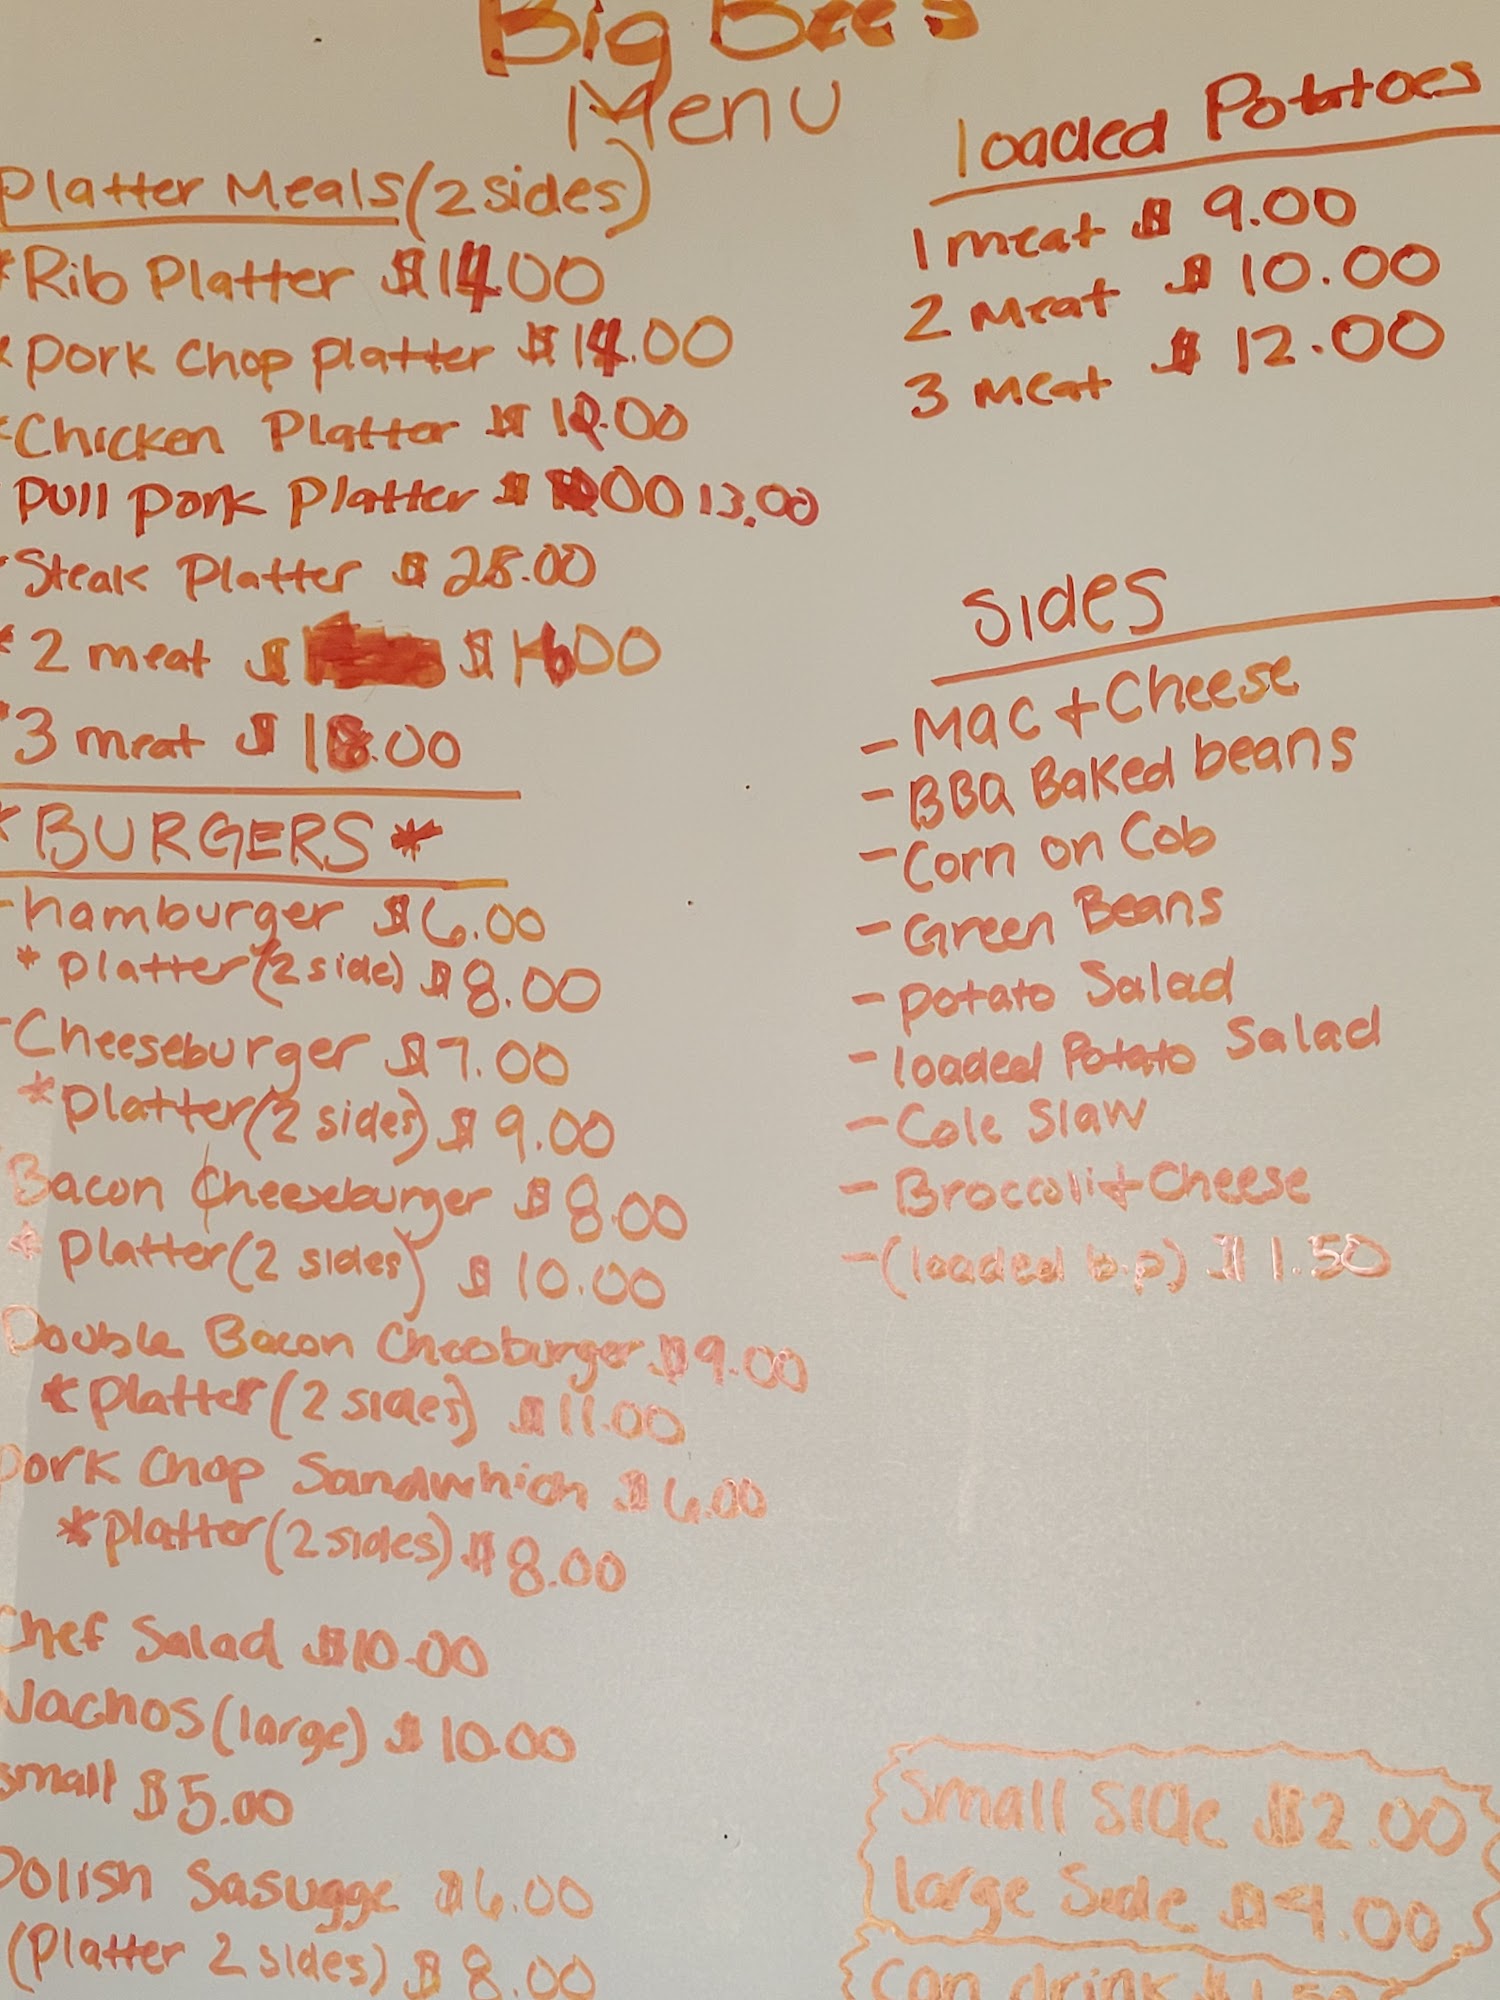 Big Bee's
Menu
Platter Meals (2 sides)
*Rib Platter $14.00
*Pork Chop Platter $14.00
*Chicken Platter $12.00
Pull Pork Platter $ 00 13.00
*Steak Platter $25.00
*2 meat $ $16.00
*3 meat $18.00
*BURGERS*
-hamburger $6.00
*platter (2 side) $8.00
-Cheeseburger $7.00
*Platter (2 sides) $9.00
Bacon Cheeseburger $8.00
*Platter (2 sides) $10.00
Double Bacon Cheesburger $9.00
*Platter (2 sides) $11.00
Pork Chop Sandwhich $6.00
*Platter (2 sides) $8.00
Chef Salad $10.00
Nachos (large) $10.00
small $5.00
Polish Sasugge $6.00
(Platter 2 sides) $8.00
loaded Potatoes
1 meat $9.00
2 meat $10.00
3 meat $12.00
Sides
-Mac + Cheese
-BBQ Baked beans
-Corn on Cob
-Green Beans
-Potato Salad
-loaded Potato Salad
-Cole Slaw
-Broccoli + Cheese
-(loaded b.p) $1.50
Small Side $2.00
large Side $4.00
Can drink $1.50